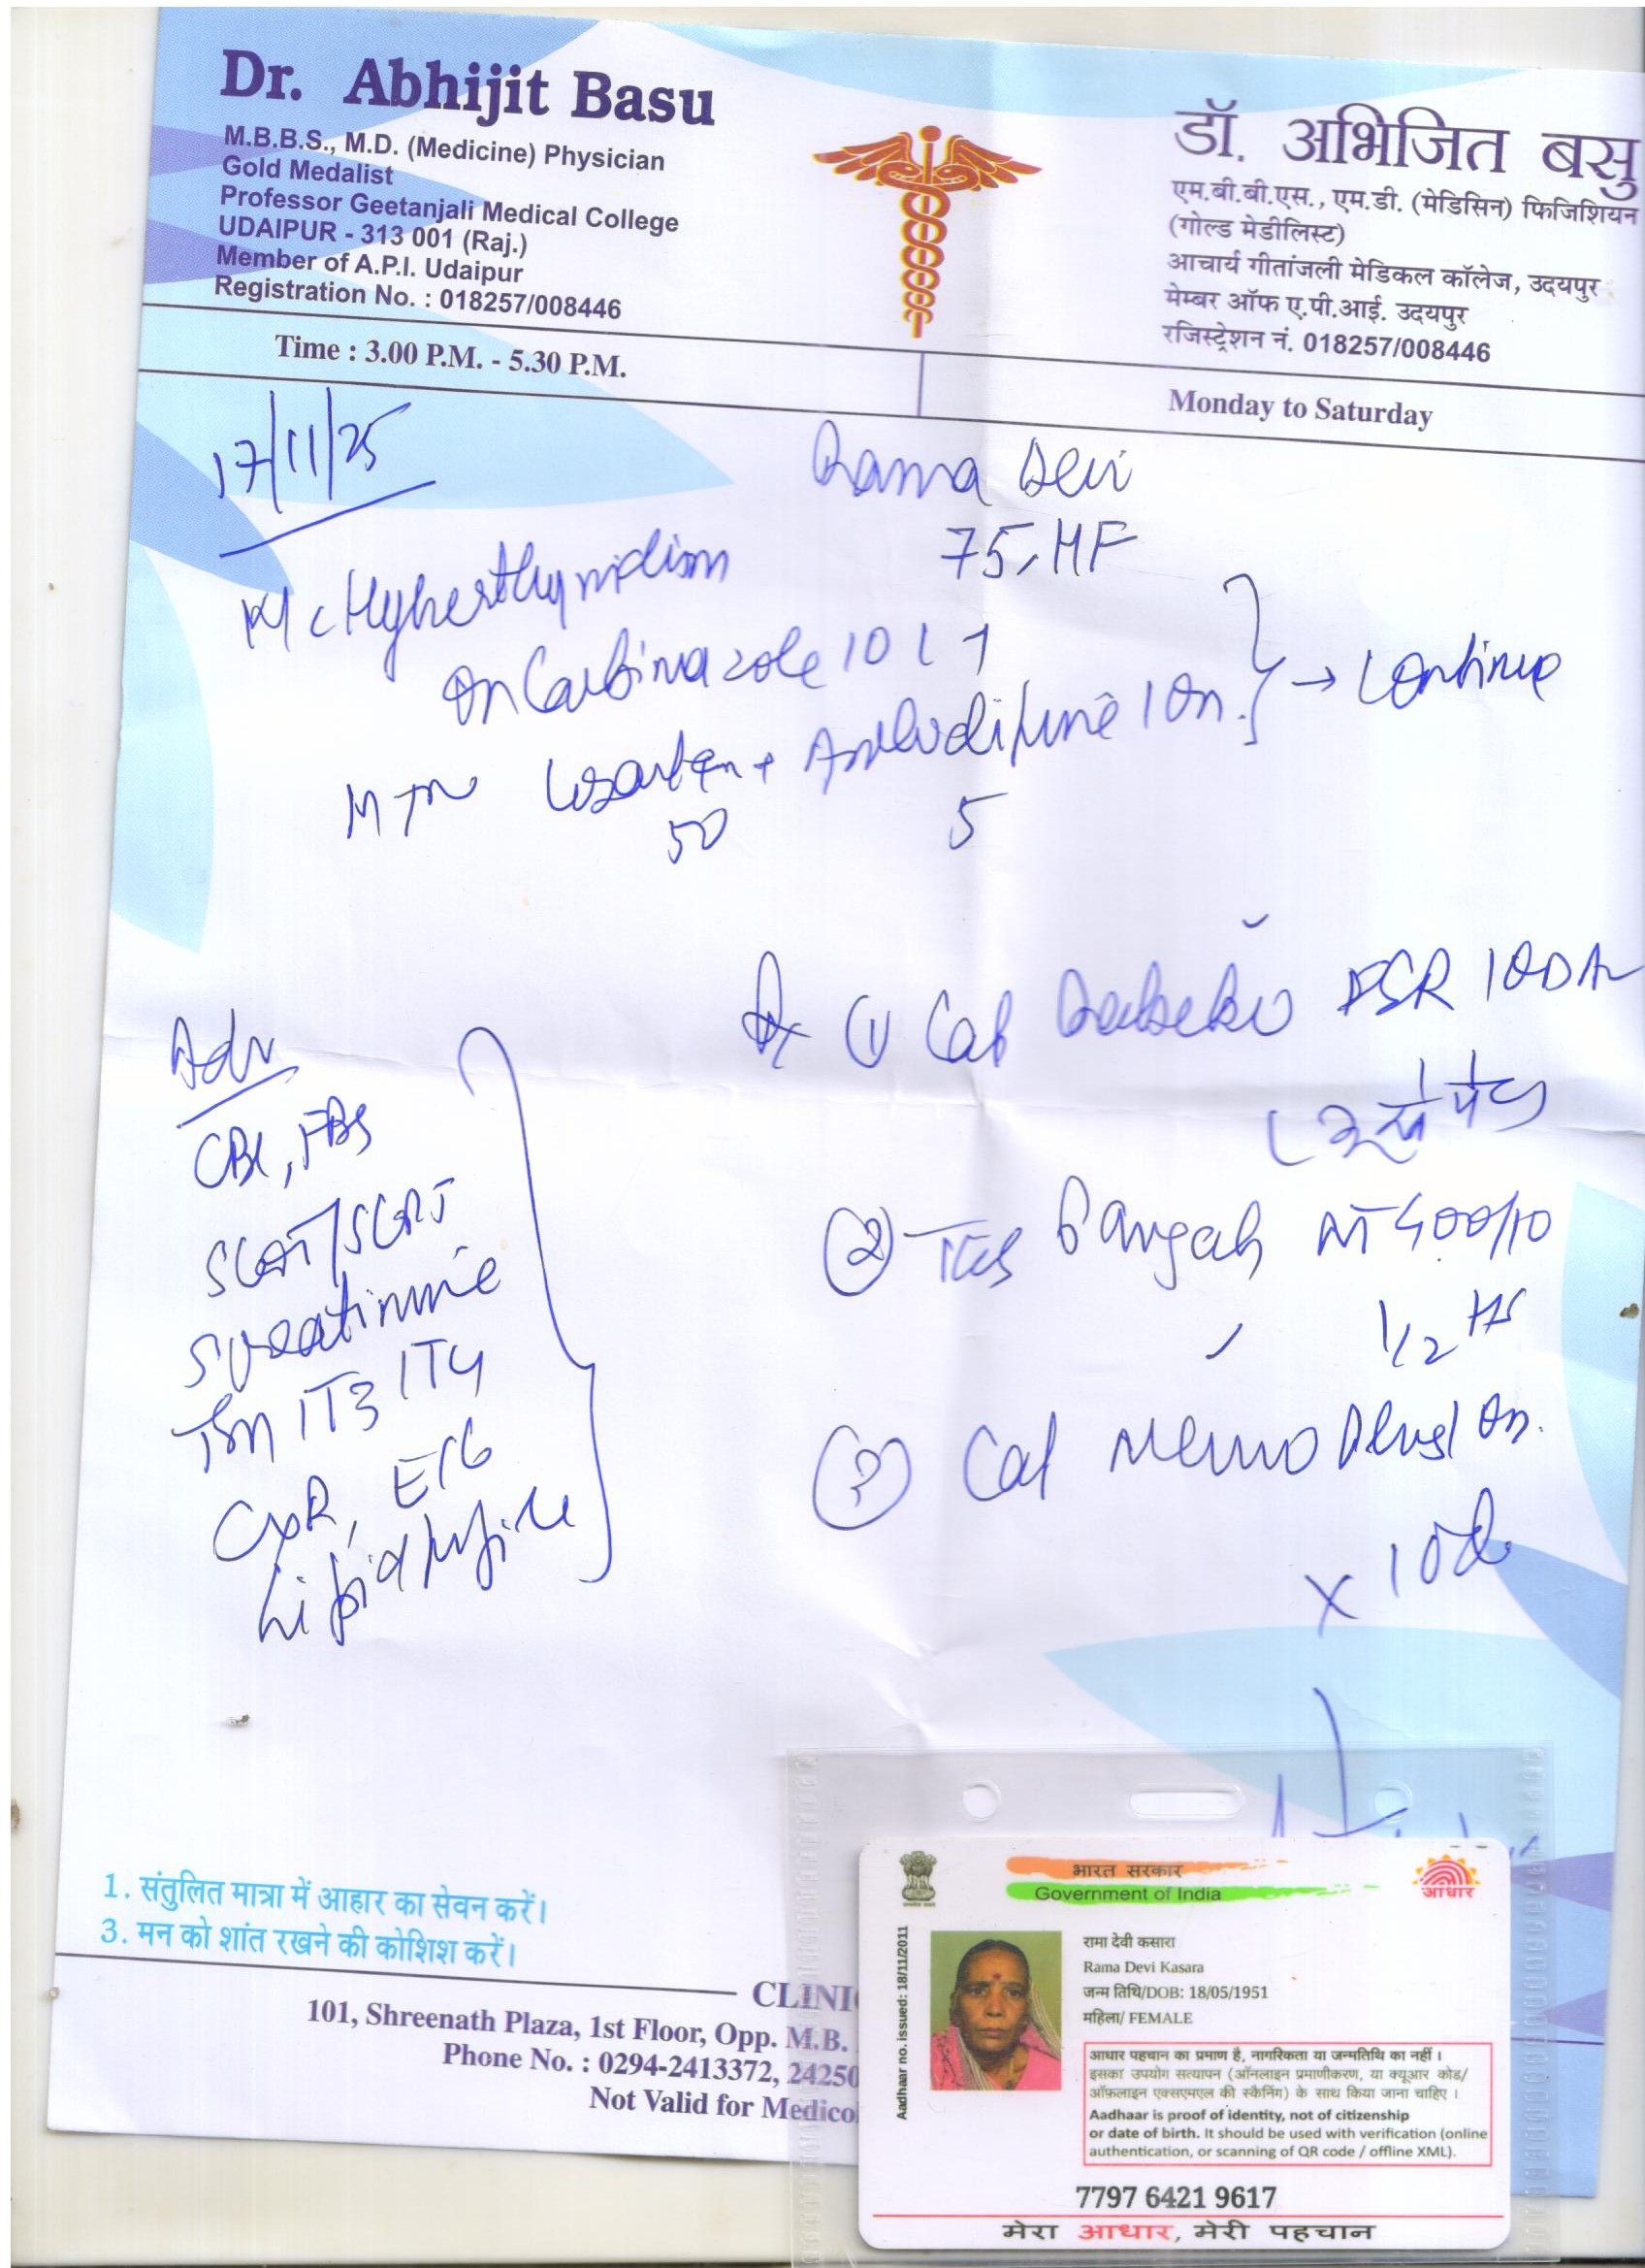 Dr. Abhijit Basu
M.B.B.S., M.D. (Medicine) Physician
Gold Medalist
Professor Geetanjali Medical College
UDAIPUR - 313 001 (Raj.)
Member of A.P.I. Udaipur
Registration No. : 018257/008446
डॉ. अभिजित बसु
एम.बी.बी.एस., एम.डी. (मेडिसिन) फिजिशियन
(गोल्ड मेडीलिस्ट)
आचार्य गीतांजली मेडिकल कॉलेज, उदयपुर
मेम्बर ऑफ ए.पी.आई. उदयपुर
रजिस्ट्रेशन नं. 018257/008446
Time : 3.00 P.M. - 5.30 P.M.
Monday to Saturday
17/11/25
Rama Devi
75,HF
Hyperthyroidism
on Carbimazole 10
Losartan + Amlodipine 1 On. } → Continue
50 5
Rx (1) Cap DSR 1
(2) Tab NT 400/10
1/2 HS
(3) Cap Plus 1 On.
x 10d
Adv
CBC, FBS
SGOT/SGPT
S creatinine
TSH 1T3 1T4
CxR, ECG
Lipid profile
1. संतुलित मात्रा में आहार का सेवन करें।
3. मन को शांत रखने की कोशिश करें।
CLINI
101, Shreenath Plaza, 1st Floor, Opp. M.B.
Phone No. : 0294-2413372, 24250
Not Valid for Medico
भारत सरकार
Government of India
आधार
Aadhaar no. issued: 18/11/2011
रामा देवी कसारा
Rama Devi Kasara
जन्म तिथि/DOB: 18/05/1951
महिला/ FEMALE
आधार पहचान का प्रमाण है, नागरिकता या जन्मतिथि का नहीं ।
इसका उपयोग सत्यापन (ऑनलाइन प्रमाणीकरण, या क्यूआर कोड/
ऑफ़लाइन एक्सएमएल की स्कैनिंग) के साथ किया जाना चाहिए ।
Aadhaar is proof of identity, not of citizenship
or date of birth. It should be used with verification (online
authentication, or scanning of QR code / offline XML).
7797 6421 9617
मेरा आधार, मेरी पहचान